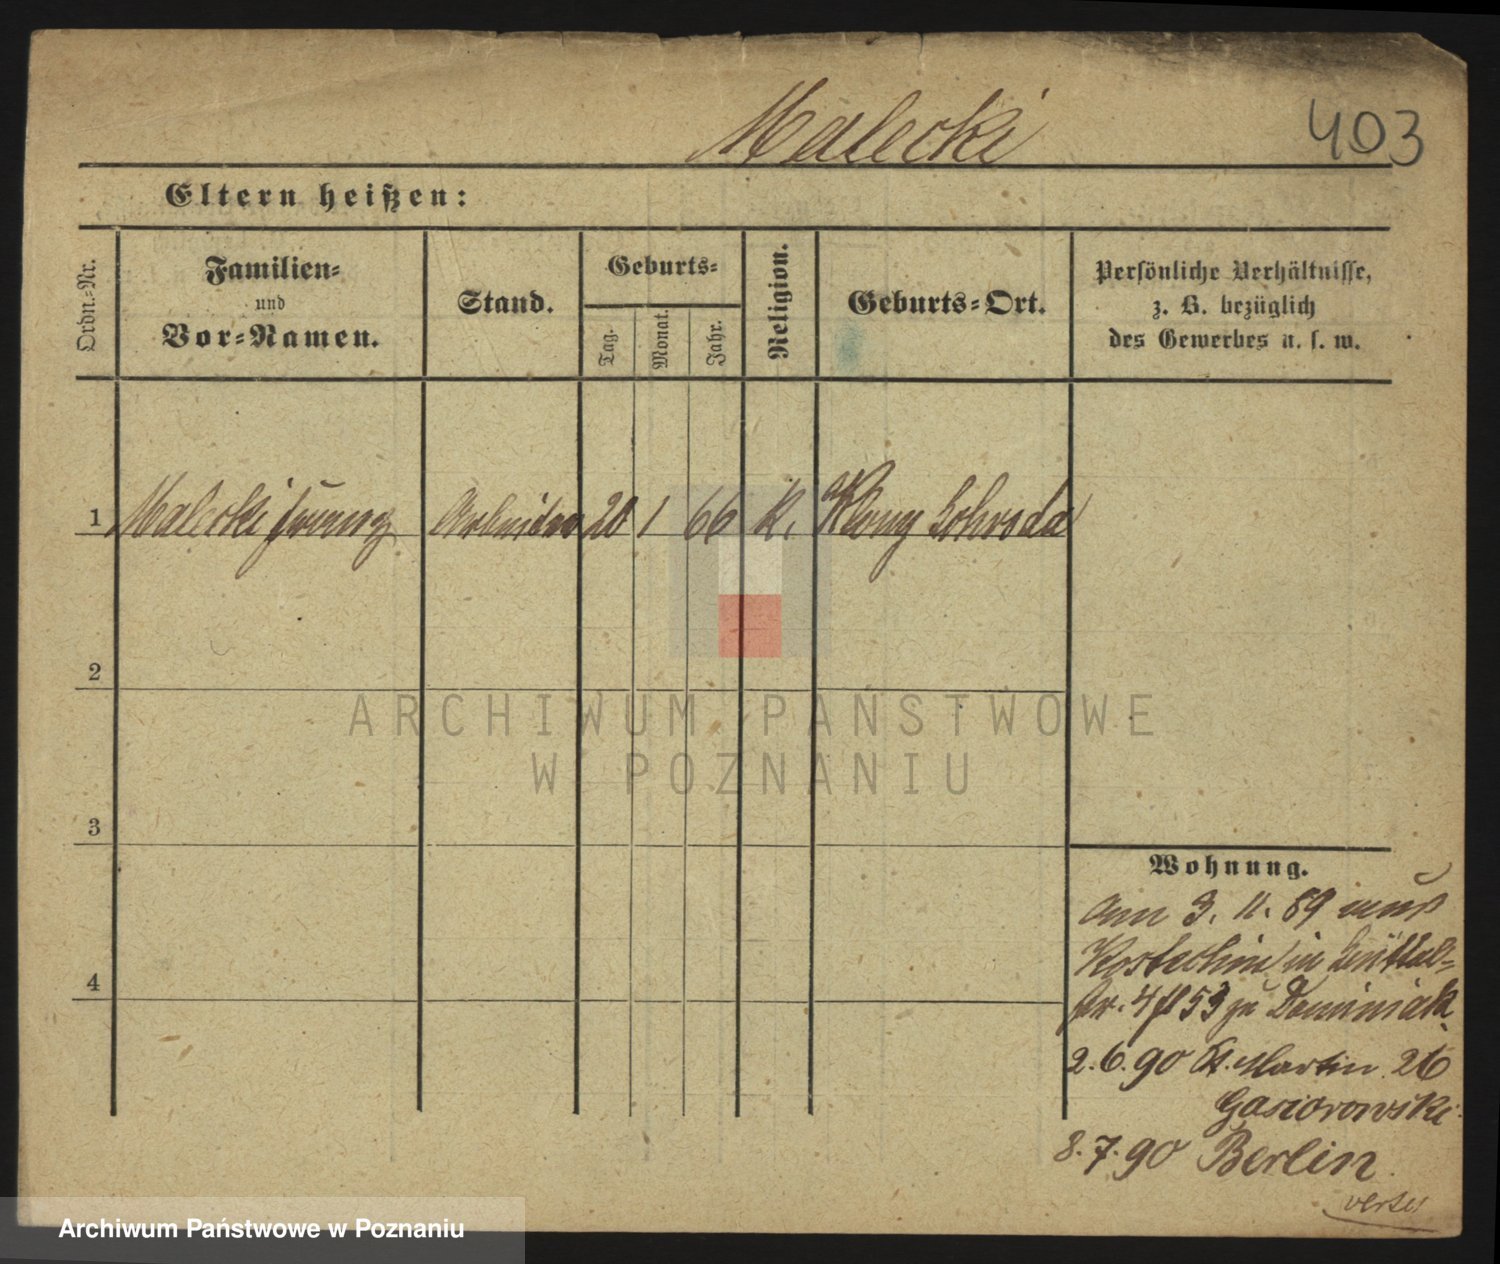 Malecki
403
Eltern heißen:
Ordn.-Nr.
Familien-
und
Vor-Namen.
Stand.
Geburts-
Tag.
Monat.
Jahr.
Religion.
Geburts-Ort.
Persönliche Verhältnisse,
z. B. bezüglich
des Gewerbes u. s. w.
1 Malecki Franz Arbeiter 20 1 66 K. Schroda
2
3
4
ARCHIWUM PAŃSTWOWE
W POZNANIU
Wohnung.
Am 3. 11. 89 aus
Kostschin in
53 zu Dominiak
2.6.90 St. Martin 26
Gasiorowski
8.7.90 Berlin
Archiwum Państwowe w Poznaniu